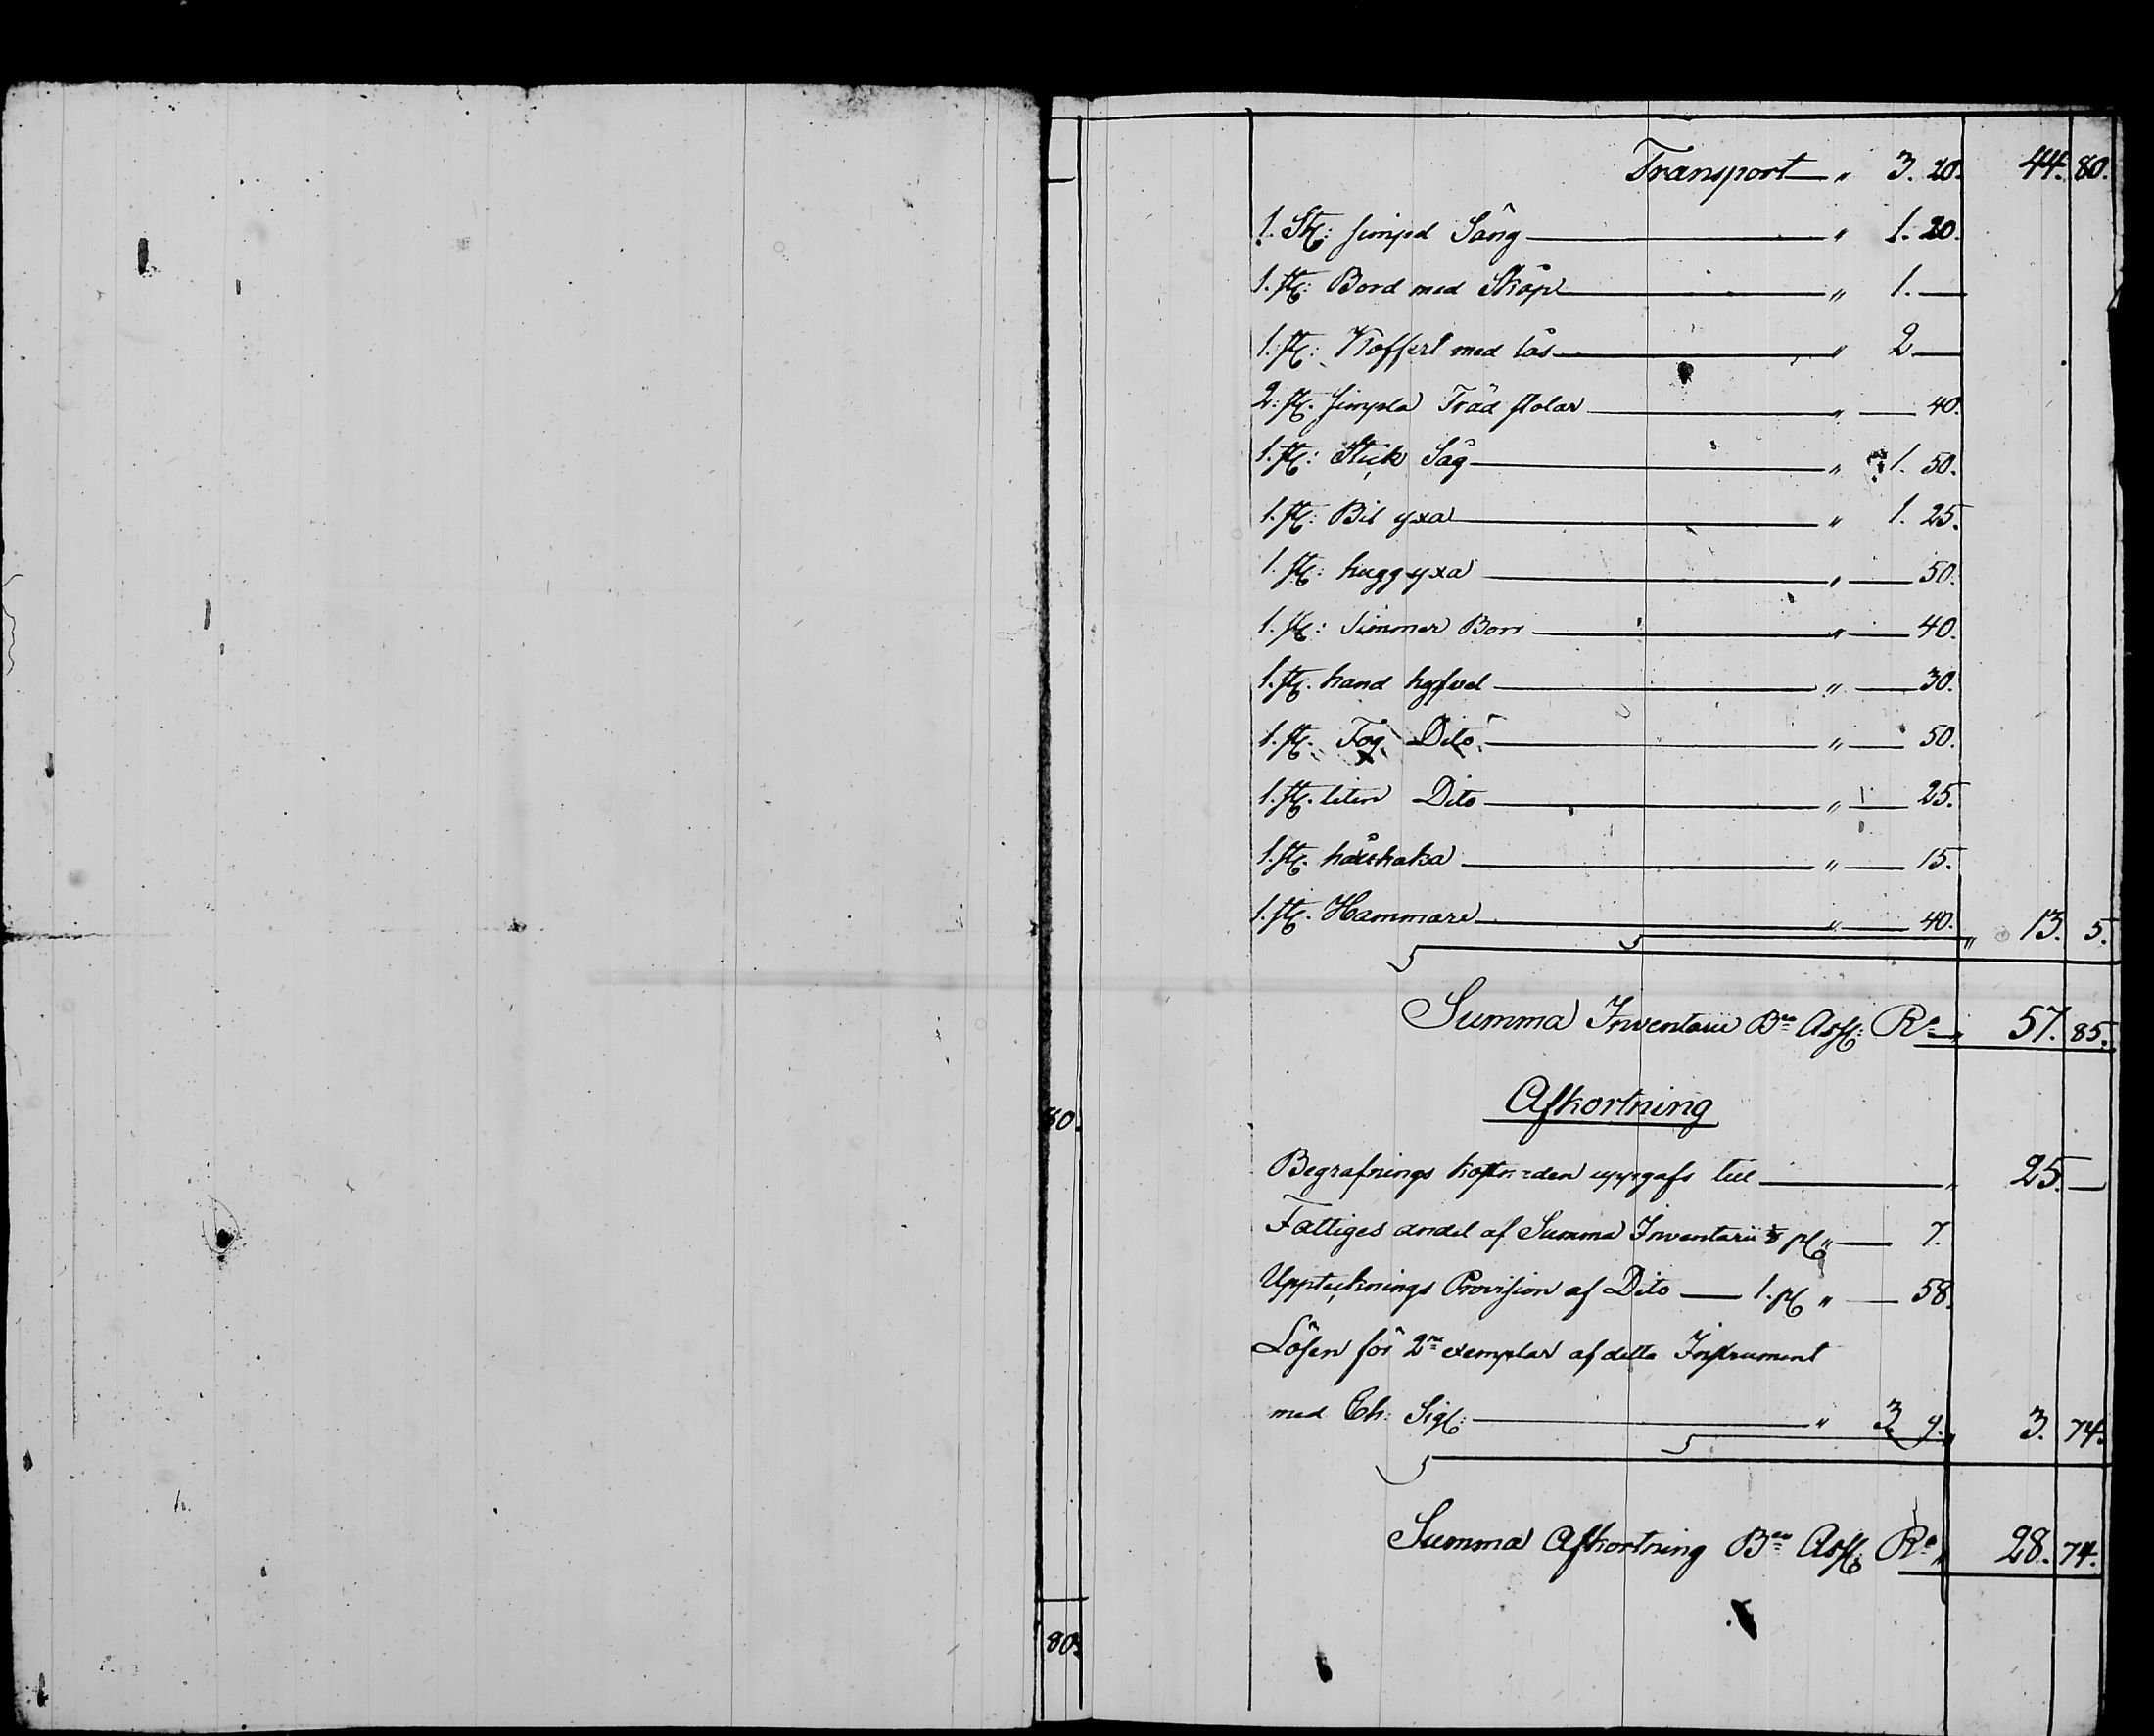 Transport — " 3. 20. 44. 80.
1. St: simpel Säng — " 1. 20.
1. st: Bord med Skåp — " 1. —
1. st: Koffert med lås — " 2 —
2: st. simpla Träd stolar — " — 40.
1. st: Stick Såg — " 1. 50.
1. st: Bil yxa — " 1. 25.
1. st: hugg yxa — " — 50.
1. st: Timmer Borr — " — 40.
1. st. hand hyfvel — " — 30.
1. st. Fog Dito — " — 50.
1. st. liten Dito — " — 25.
1. st. håshaka — " — 15.
1. st. Hammare — " — 40. " 13. 5.
Summa Inventarii Bco Assg: Rd " 57. 85.
Afkortning
80.
Begrafnings kostn=den uppgafs till — " 25. —
Fattiges andel af Summa Inventarii ⅛ pC " — 7.
Uppteknings Provision af Dito — 1. pC " — 58.
Lösen för 2ne exemplar af detta Instrument
med Ch: Sigl: — " 3 9. " 3. 74.
Summa Afkortning Bco Assg. Rd " 28. 74.
80.